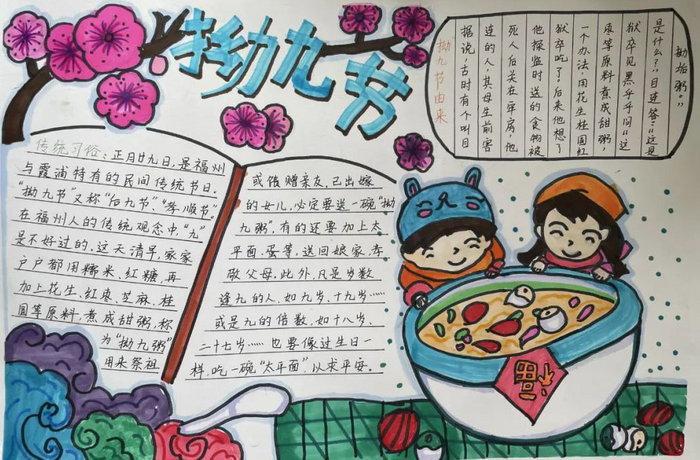 拗九节
拗九节由来
据说,古时有个叫目
连的人,其母生前害
死人后关在牢房,他
他探监时送的食物被
狱卒吃了,后来他想了
一个办法,用花生桂圆红
枣等原料煮成甜粥,
狱卒见黑乎乎问:“这
是什么?”目连答:“这是
拗垢粥。”
传统习俗:正月廿九日,是福州
与霞浦特有的民间传统节日.
“拗九节”又称“后九节”“孝顺节”
在福州人的传统观念中,“九”
是不好过的.这天清早,家家
户户都用糯米、红糖,再
加上花生、红枣、芝麻、桂
圆等原料,煮成甜粥,称
为“拗九粥”
用来祭祖
或馈赠亲友,已出嫁
的女儿,必定要送一碗“拗
九粥”.有的还要加上太
平面.蛋等,送回娘家孝
敬父母,此外,凡是岁数
逢九的人,如九岁、十九岁……
或是九的倍数,如十八岁、
二十七岁……也要像过生日一
样,吃一碗“太平面”以求平安.
福